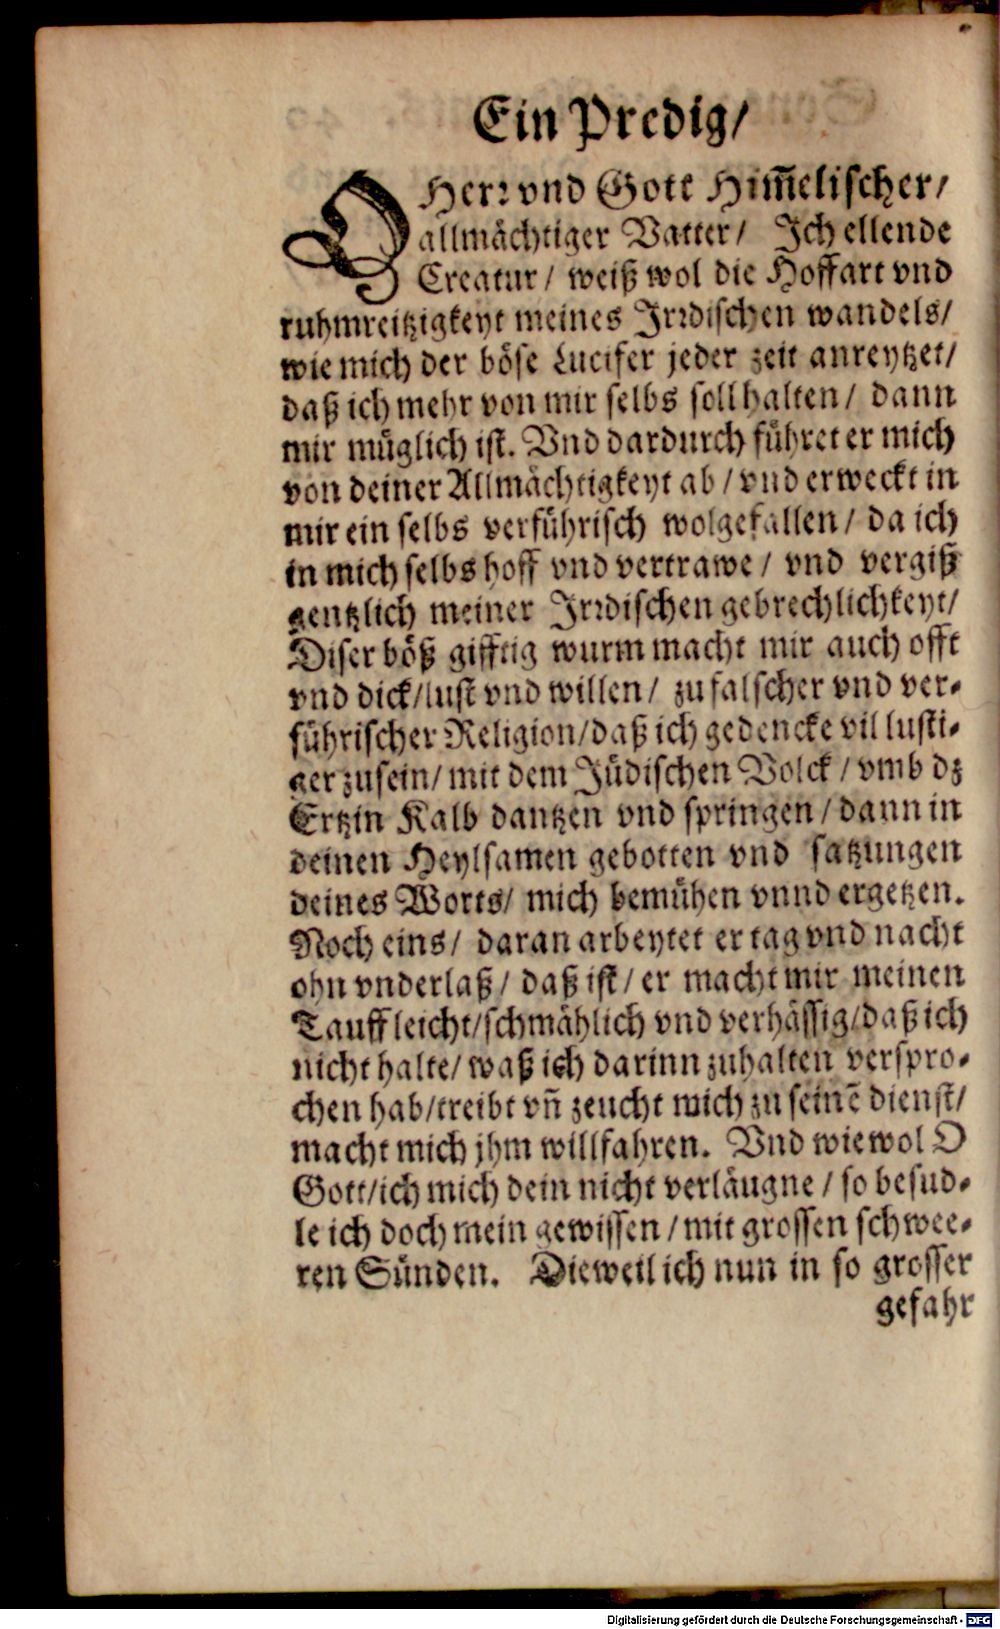 Ein Predig/
O Herꝛ vnd Gott Him̃elischer/
allmächtiger Vatter/ Ich ellende
Creatur/ weiß wol die Hoffart vnd
ruhmreitzigkeyt meines Irꝛdischen wandels/
wie mich der böse Lucifer jeder zeit anreytzet/
daß ich mehr von mir selbs soll halten/ dann
mir müglich ist. Vnd dardurch führet er mich
von deiner Allmächtigkeyt ab/ vnd erweckt in
mir ein selbs verführisch wolgefallen/ da ich
in mich selbs hoff vnd vertrawe/ vnd vergiß
gentzlich meiner Irꝛdischen gebrechlichkeyt/
Diser böß gifftig wurm macht mir auch offt
vnd dick/lust vnd willen/ zu falscher vnd ver-
führischer Religion/daß ich gedencke vil lusti-
ger zusein/ mit dem Jüdischen Volck/ vmb dz
Ertzin Kalb dantzen vnd springen/ dann in
deinen Heylsamen gebotten vnd satzungen
deines Worts/ mich bemühen vnnd ergetzen.
Noch eins/ daran arbeytet er tag vnd nacht
ohn vnderlaß/ daß ist/ er macht mir meinen
Tauff leicht/schmählich vnd verhässig/daß ich
nicht halte/ waß ich darinn zuhalten verspro-
chen hab/treibt vn̄ zeucht mich zu seinē dienst/
macht mich jhm willfahren. Vnd wiewol O
Gott/ich mich dein nicht verläugne/ so besud-
le ich doch mein gewissen/ mit grossen schwee-
ren Sünden. Dieweil ich nun in so grosser
gefahr
Digitalisierung gefördert durch die Deutsche Forschungsgemeinschaft - DFG